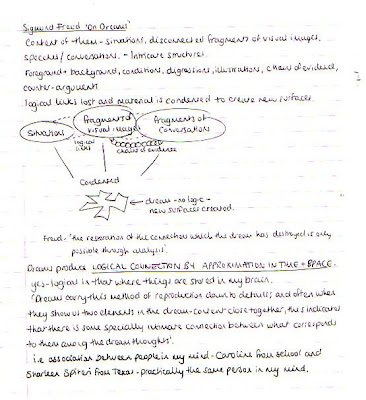 Sigmund Freud 'On Dreams'
Content of them - situations, disconnected fragments of visual images,
speeches/conversations. - Intricate structures.
Foreground + background, conditions, digressions, illustrations, chains of evidence,
counter-arguments
logical links lost and material is condensed to create new surfaces.
Situations
Fragments of
visual images
Fragments of
Conversation
logical
links
chains of evidence
Condensed
dream - no logic -
new surfaces created.
Freud - 'the restoration of the connections which the dream has destroyed is only
possible through analysis'.
Dreams produce LOGICAL CONNECTION BY APPROXIMATION IN TIME + SPACE.
yes - logical in that where things are stored in my brain.
'Dreams carry this method of reproduction down to details; and often when
they show us two elements in the dream-content close together, this indicates
that there is some specially intimate connection between what corresponds
to them among the dream thoughts'.
i.e association between people in my mind - Caroline from school and
Sharleen Spiteri from Texas - practically the same person in my mind.